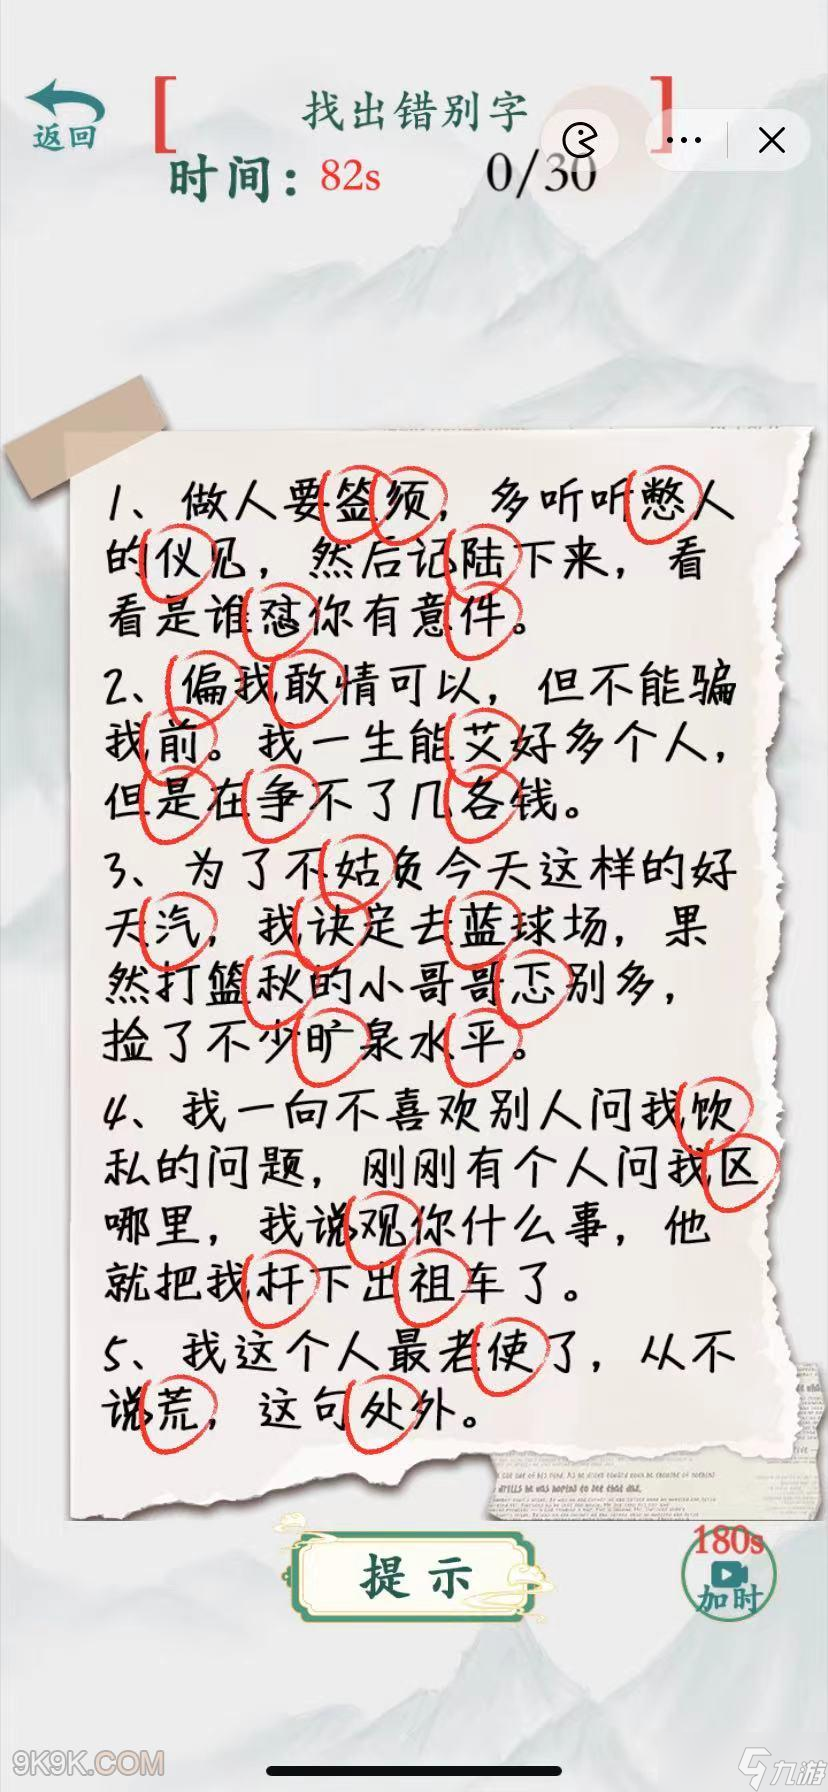 找出错别字
返回
时间：82s 0/30
1、做人要签须，多听听憋人
的仪见，然后记陆下来，看
看是谁怼你有意件。
2、偏我敢情可以，但不能骗
我前。我一生能艾好多个人，
但是在争不了几各钱。
3、为了不姑负今天这样的好
天汽，我诀定去蓝球场，果
然打篮秋的小哥哥忑别多，
捡了不少旷泉水平。
4、我一向不喜欢别人问我饮
私的问题，刚刚有个人问我区
哪里，我说观你什么事，他
就把我扞下出祖车了。
5、我这个人最老使了，从不
说荒，这句处外。
提示
180s
加时
9K9K.COM
九游